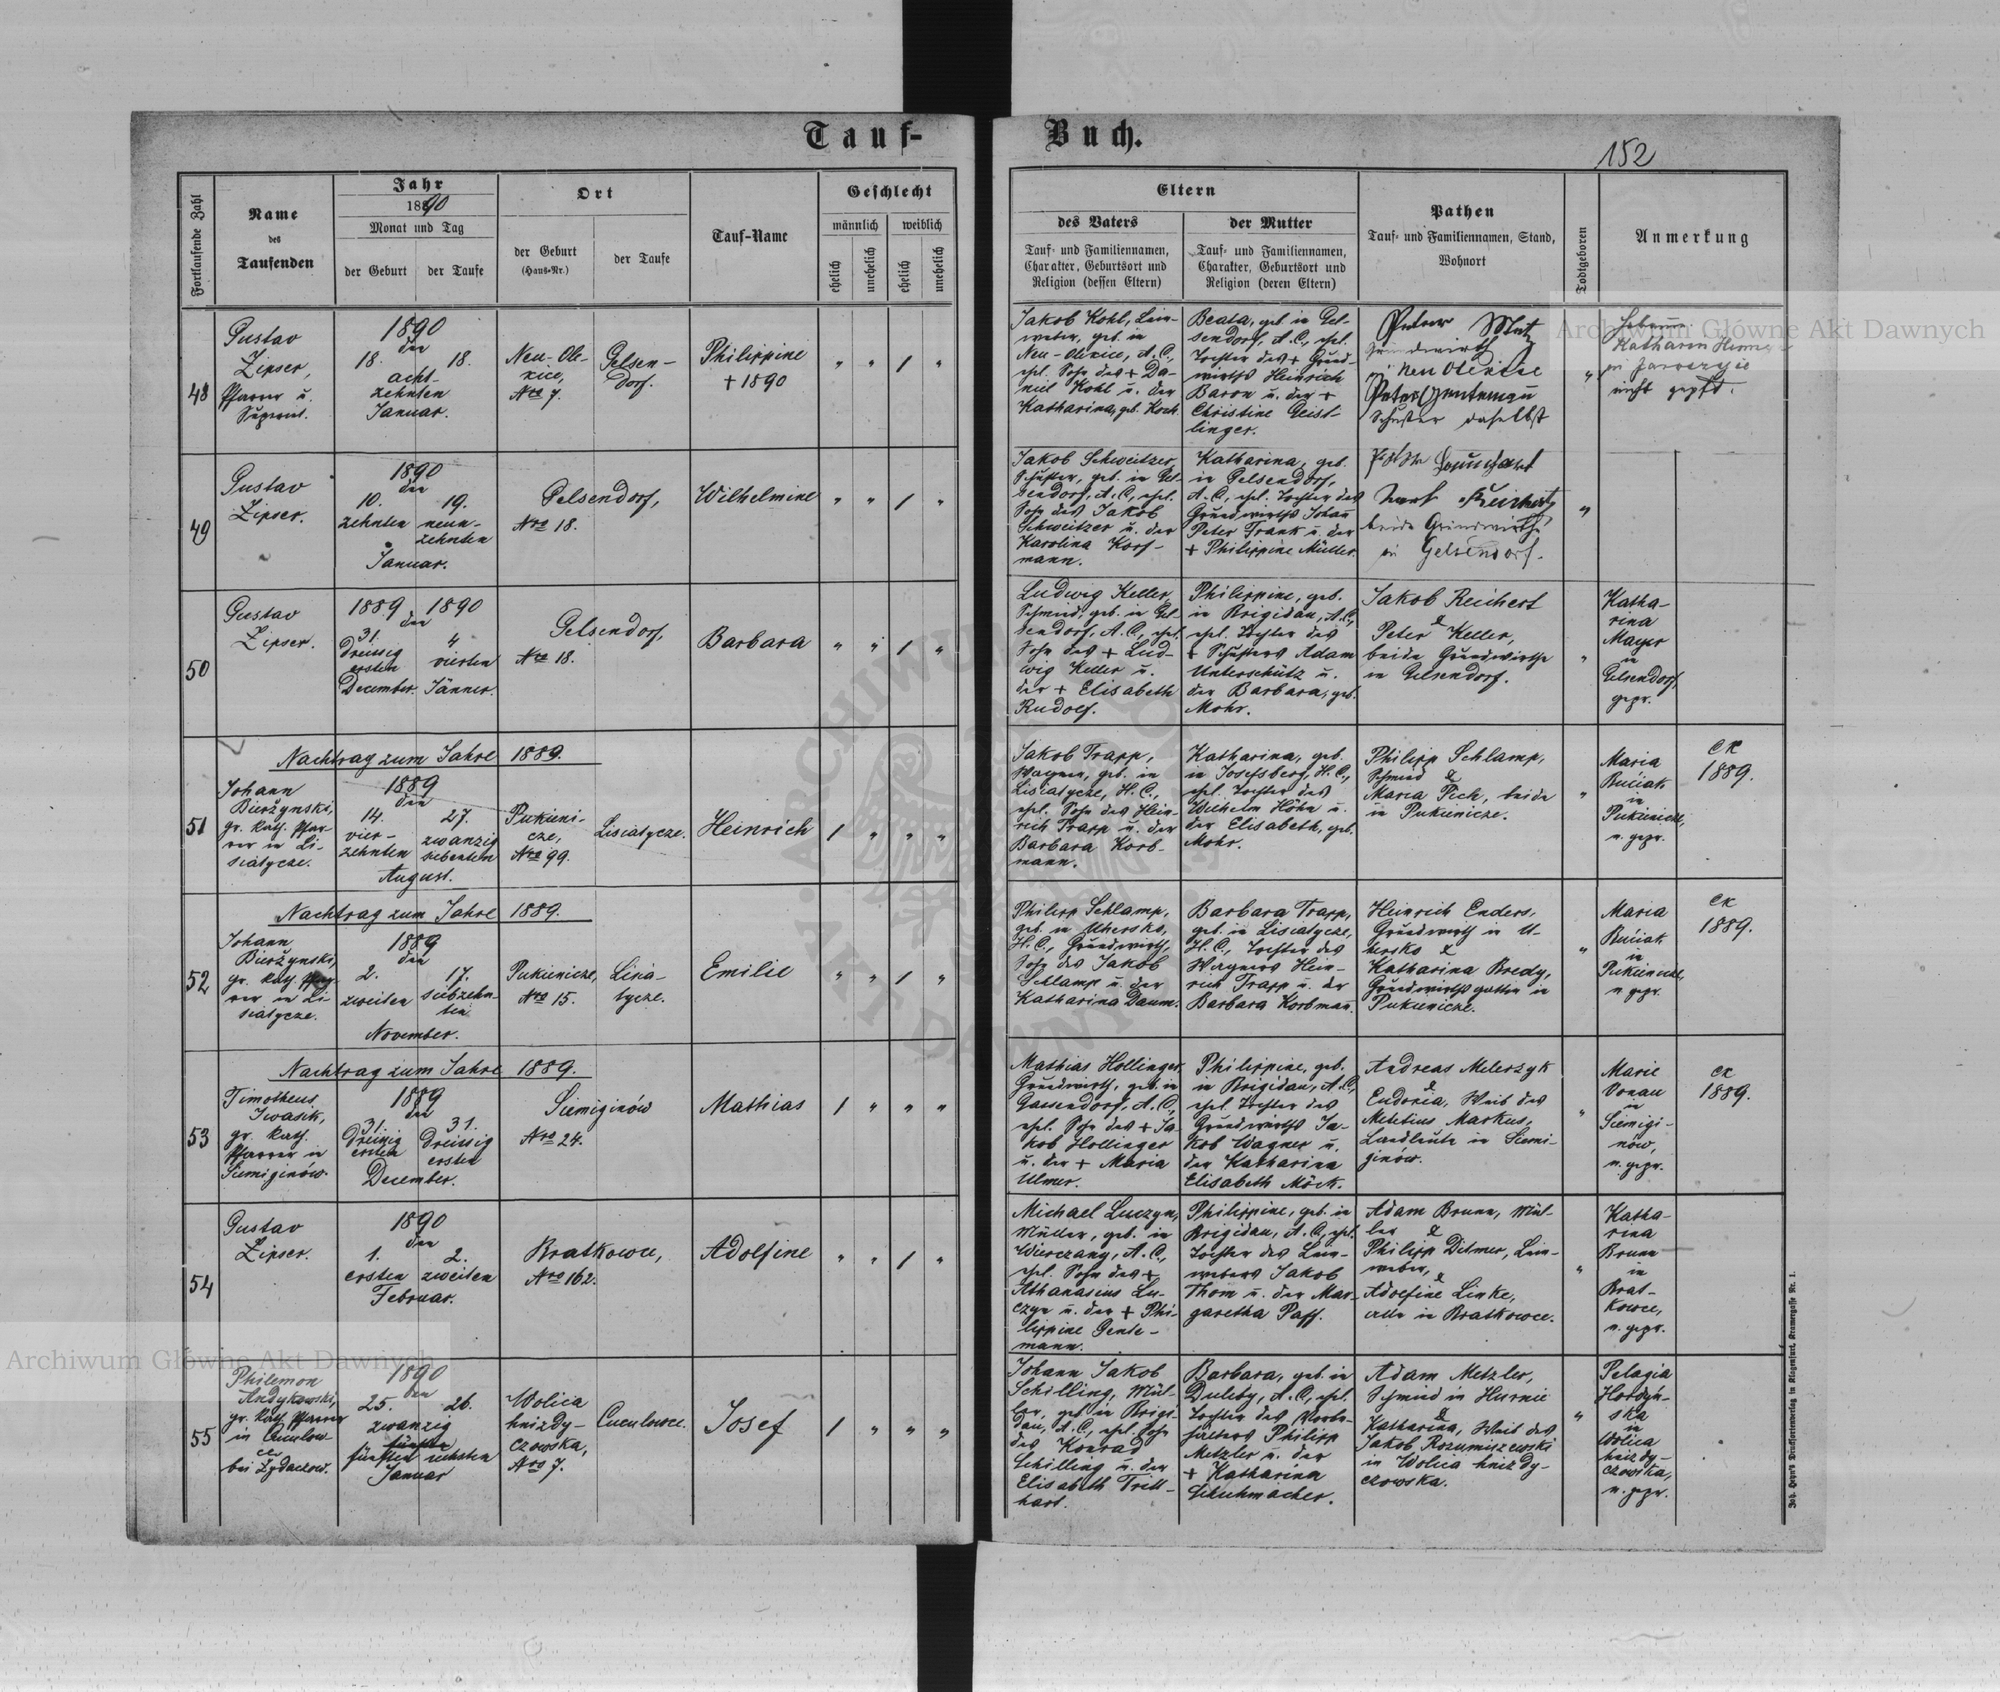 Tauf-Buch.
152
Fortlaufende Zahl
Name
des
Taufenden
Jahr
1890
Monat und Tag
der Geburt
der Taufe
Ort
der Geburt
(Haus-Nr.)
der Taufe
Tauf-Name
Geschlecht
männlich
weiblich
ehelich
unehelich
ehelich
unehelich
Eltern
des Vaters
Tauf- und Familiennamen,
Charakter, Geburtsort und
Religion (dessen Eltern)
der Mutter
Tauf- und Familiennamen,
Charakter, Geburtsort und
Religion (deren Eltern)
Pathen
Tauf- und Familiennamen, Stand,
Wohnort
Todtgeboren
Anmerkung
48
Gustav
Zipser,
Pfarrer u.
1890
den
18. 18.
acht-
zehnten
Januar.
Neu-Ole-
xice,
Nro 7.
Gelsen-
dorf.
Philippine
+ 1890
" " / "
Jakob Kohl, Lein-
weber, geb. in
Neu-Olexice, A.C.,
ehl. Sohn des + Da-
niel Kohl u. der
Katharina, geb. Koch.
Beata, geb. in Gel-
sendorf, A.C., ehel.
Tochter des + Grund-
wirths Heinrich
Baron u. der +
Christine Geist-
linger.
Grundwirth
in Neu Olexice
Peter Gentemann
Schuster daselbst
"
Katharin
nicht gepft.
49
Gustav
Zipser.
1890
den
10. 19.
zehnten neun-
zehnten
Januar.
Gelsendorf,
Nro 18.
Wilhelmine
" " / "
Jakob Schweitzer,
Schuster, geb. in Gel-
sendorf, A.C., ehel.
Sohn des Jakob
Schweitzer u. der
Karolina Korf-
mann.
Katharina, geb.
in Gelsendorf,
A.C., ehel. Tochter des
Grundwirths Johann
Peter Frank u. der
+ Philippine Müller.
beide Grundwirthe
in Gelsendorf.
"
50
Gustav
Zipser.
1889 1890
den
31. 4
Dreissig
ersten vierten
December. Jänner.
Gelsendorf,
Nro 18.
Barbara
" " / "
Ludwig Keller,
Schmied, geb. in Gel-
sendorf, A.C., ehel.
Sohn des + Lud-
wig Keller u.
der + Elisabeth
Rudolf.
Philippine, geb.
in Brigidau, A.C.,
ehel. Tochter des
+ Schusters Adam
Unterschütz u.
der Barbara, geb.
Mohr.
Jakob Reichert
&
Peter Keller,
beide Grundwirthe
in Gelsendorf.
"
Katha-
rina
Mayer
in
Gelsendorf,
gepr.
Nachtrag zum Jahre 1889.
51
Johann
Bierżynski,
gr. kath. Pfar-
rer in Li-
siatycze.
1889
den
14. 27.
vier- zwanzig
zehnten siebenten
August.
Pukieni-
cze,
Nro 99.
Lisiatycze.
Heinrich
/ " " "
Jakob Trapp,
Wagner, geb. in
Lisiatycze, H.C.,
ehel. Sohn des Hein-
rich Trapp u. der
Barbara Korb-
mann.
Katharina, geb.
in Josefsberg, H.C.,
ehel. Tochter des
Wilhelm Höhn u.
der Elisabeth, geb.
Mohr.
Philipp Schlamp,
Schmied &
Maria Pich, beide
in Pukienicze.
"
Maria
Buciak
in
Pukienicze,
n. gepr.
ex
1889.
Nachtrag zum Jahre 1889.
52
Johann
Bierżynski,
gr. kath. Pfar-
rer in Li-
siatycze.
1889
den
2. 17.
zweiten siebzehn-
ten
November.
Pukienicze,
Nro 15.
Lisia-
tycze.
Emilie
" " / "
Philipp Schlamp,
geb. in Uhersko,
H.C., Grundwirth,
Sohn des Jakob
Schlamp u. der
Katharina Daum.
Barbara Trapp,
geb. in Lisiatycze,
H.C., Tochter des
Wagners Hein-
rich Trapp u. der
Barbara Korbmann.
Heinrich Enders,
Grundwirth in U-
hersko &
Katharina Bredy,
Grundwirthsgattin in
Pukienicze.
"
Maria
Buciak
in
Pukienicze,
n gepr.
ex
1889.
Nachtrag zum Jahre 1889.
53
Timotheus
Iwasik,
gr. kath.
Pfarrer in
Siemiginów.
1889
den
31. 31.
Dreissig Dreissig
ersten ersten
December.
Siemiginów
Nro 24.
Mathias
/ " " "
Mathias Hollinger,
Grundwirth, geb. in
Gassendorf, A.C.,
ehel. Sohn des + Ja-
kob Hollinger
u. der + Maria
Ulmer.
Philippine, geb.
in Brigidau, A.C.,
ehel. Tochter des
Grundwirths Ja-
kob Wagner u.
der Katharina
Elisabeth Möck.
Andreas Melerzyk
&
Eudoxia, Weib des
Metetius Markus,
Landleute in Siemi-
ginów.
"
Marie
Vonau
in
Siemigi-
nów,
n. gepr.
ex
1889.
54
Gustav
Zipser.
1890
den
1. 2.
ersten zweiten
Februar.
Bratkowce,
Nro 162.
Adolfine
" " / "
Michael Luczyn,
Müller, geb. in
Wierczany, A.C.,
ehel. Sohn des +
Athanasius Lu-
czyn u. der + Phi-
lippine Gente-
mann.
Philippine, geb. in
Brigidau, A.C., ehel.
Tochter des Lein-
webers Jakob
Thom u. der Mar-
garetha Paff.
Adam Brunn, Mül-
ler &
Philipp Ditmer, Lein-
weber, &
Adolfine Linke,
alle in Bratkowce.
"
Katha-
rina
Brunn
in
Brat-
kowce,
n. gepr.
55
Philemon
Andykowski,
gr. kath. Pfarrer
in Cuculow-
ce
bei Żydaczow.
1890
den
25. 26.
zwanzig
fünften sechsten
Januar
Wolica
hnizdy-
czowska,
Nro 7.
Cuculowce.
Josef
/ " " "
Johann Jakob
Schilling, Mül-
ler, geb. in Brigi-
dau, A.C., ehel. Sohn
des Konrad
Schilling u. der
Elisabeth Tritt-
hart.
Barbara, geb. in
Duliby, A.C., ehel.
Tochter des
Philipp
Metzler u. der
+ Katharina
Schuhmacher.
Adam Metzler,
Schmied in Hurnie
&
Katharina, Weib des
Jakob Rozumiszewski
in Wolica hnizdy-
czowska.
"
Pelagia
Hordyh-
ska
in
Wolica
hnizdy-
czowska,
n. gepr.
Joh. Heyn's Druckfortenverlag in Klagenfurt, Kramergasse Nr. 1.
Archiwum Główne Akt Dawnych
Archiwum Główne Akt Dawnych